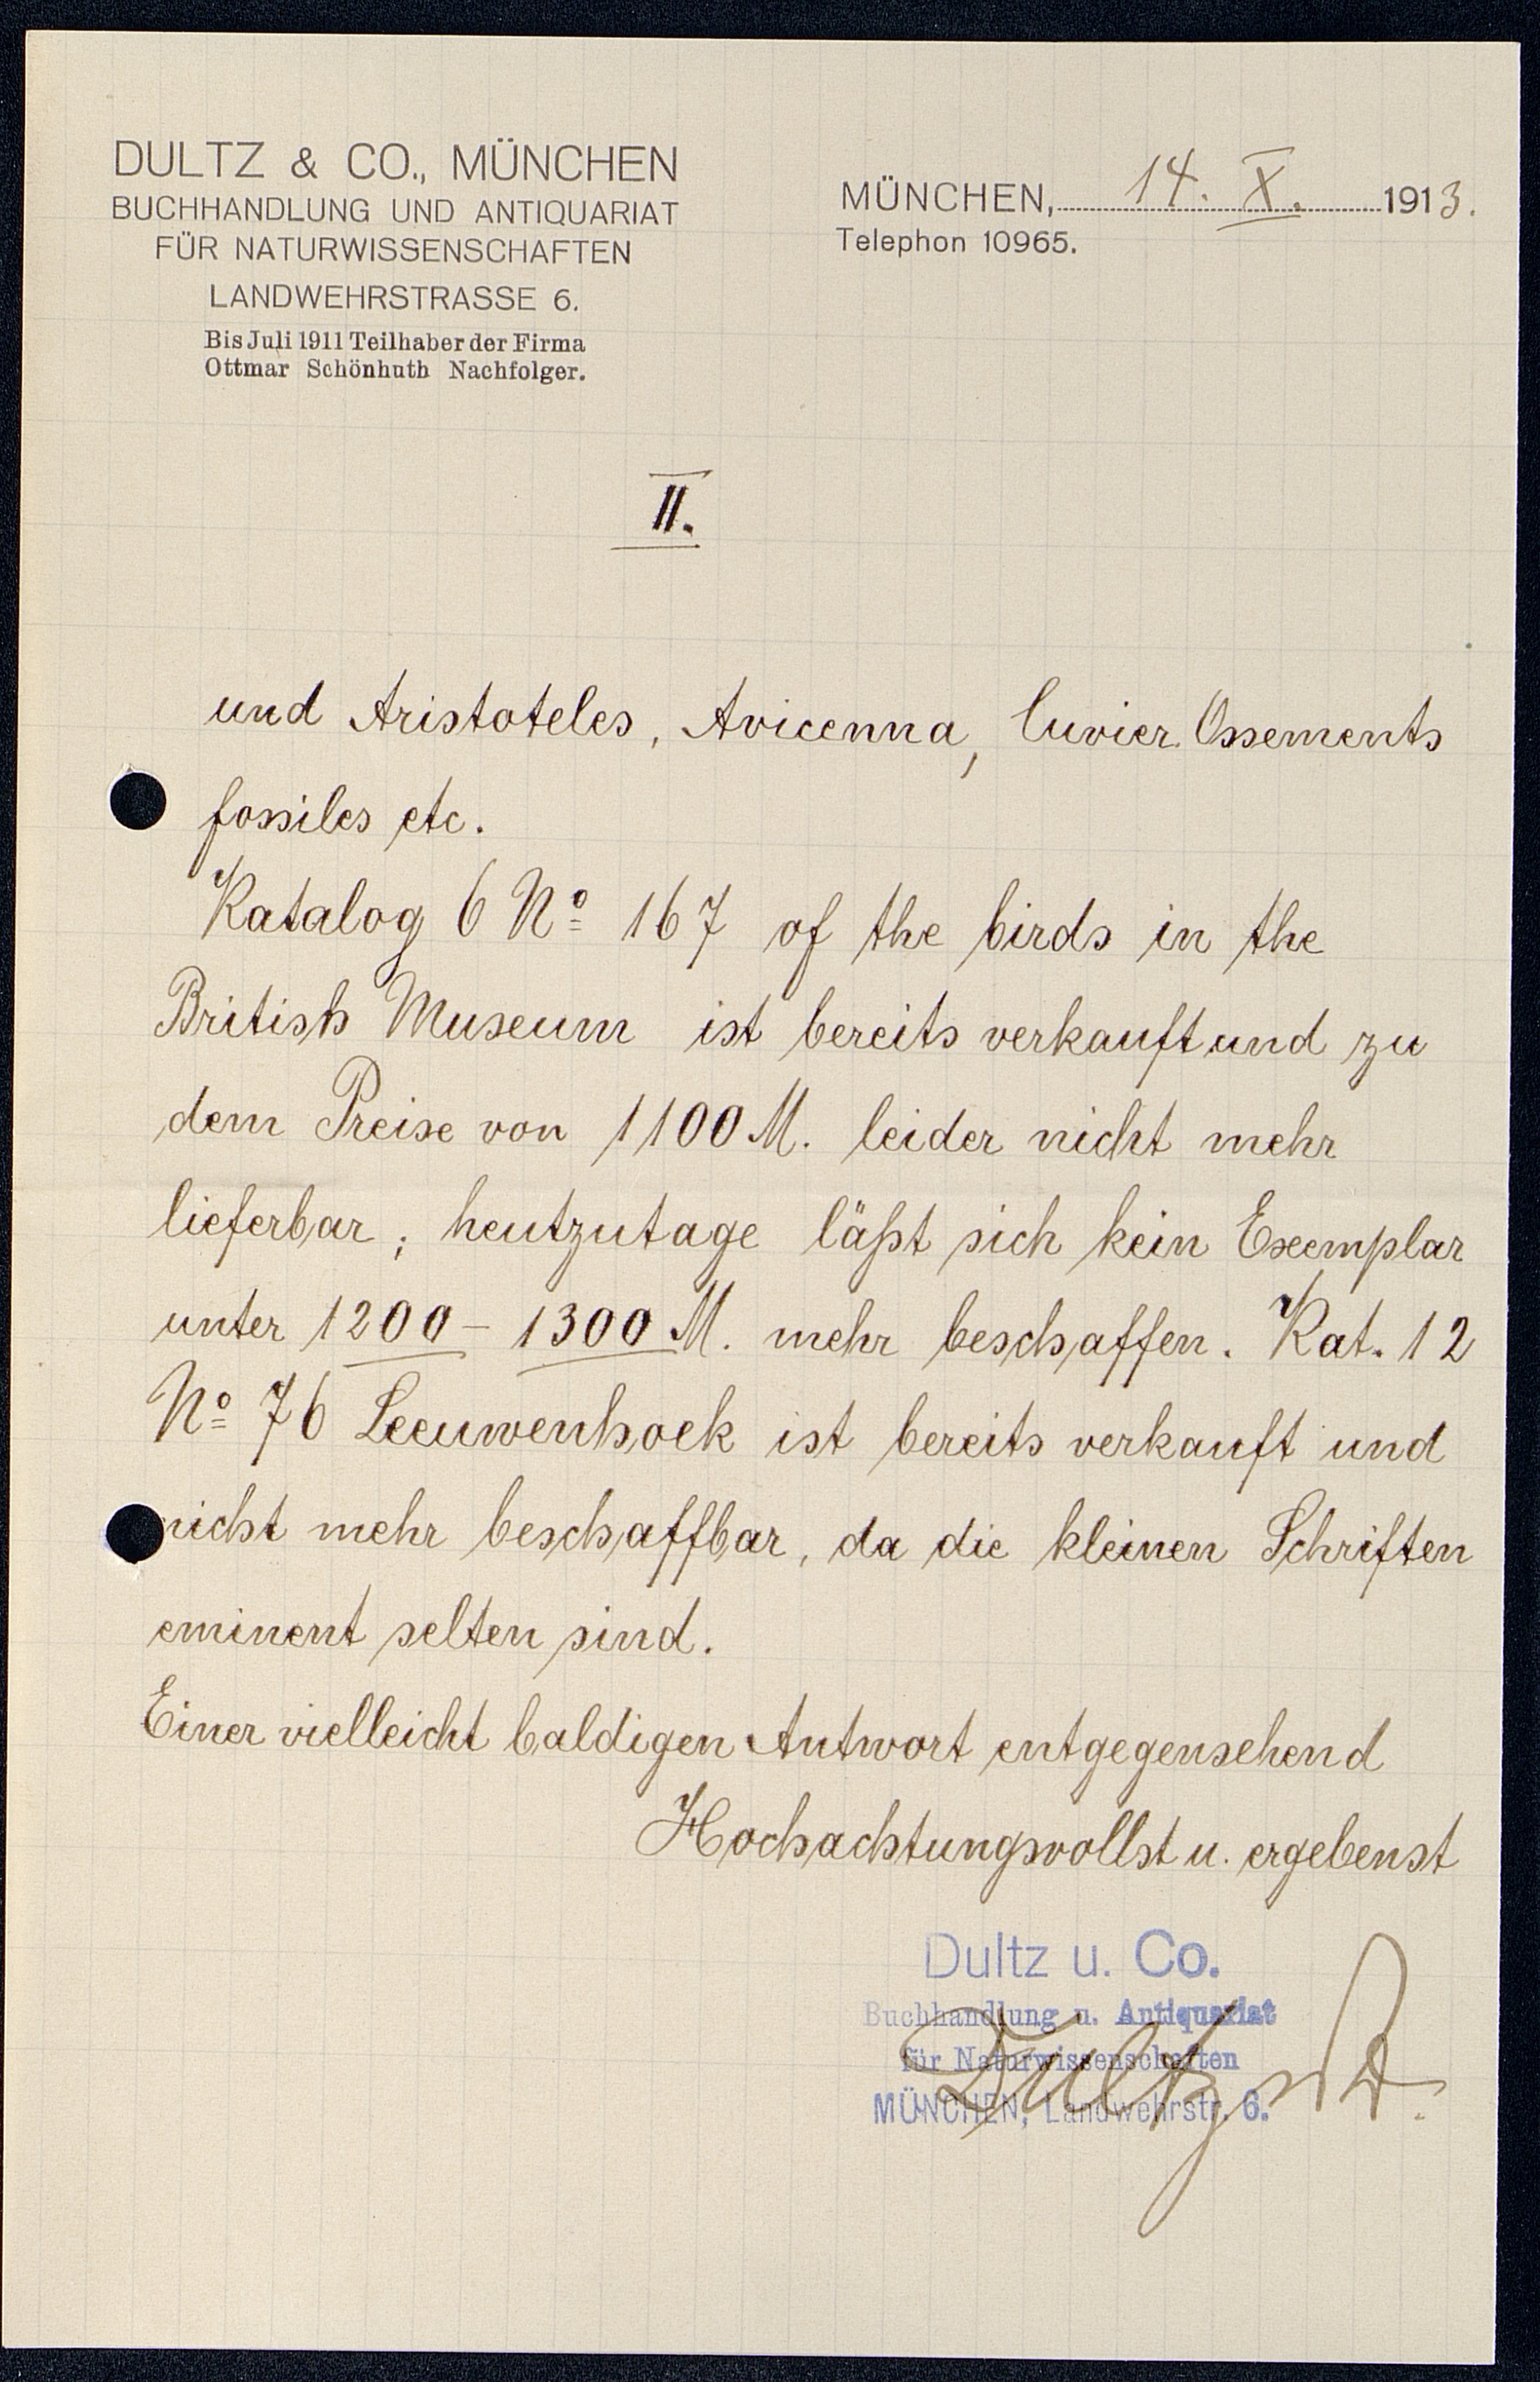 DULTZ & CO., MÜNCHEN
BUCHHANDLUNG UND ANTIQUARIAT
FÜR NATURWISSENSCHAFTEN
LANDWEHRSTRASSE 6.
Bis Juli 1911 Teilhaber der Firma
Ottmar Schönhuth Nachfolger.
MÜNCHEN, 14. X. 1913.
Telephon 10965.
II.
und Aristoteles, Avicenna, Cuvier Ossements
fossiles etc.
Katalog 6 Nº 167 of the birds in the
British Museum ist bereits verkauft und zu
dem Preise von 1100 M. leider nicht mehr
lieferbar; heutzutage läßt sich kein Exemplar
unter 1200 – 1300 M. mehr beschaffen. Kat. 12
Nº 76 Leeuwenhoek ist bereits verkauft und
nicht mehr beschaffbar, da die kleinen Schriften
eminent selten sind.
Einer vielleicht baldigen Antwort entgegensehend
Hochachtungsvollst u. ergebenst
Dultz u. Co.
Buchhandlung u. Antiquariat
für Naturwissenschaften
MÜNCHEN, Landwehrstr. 6.
Dultz